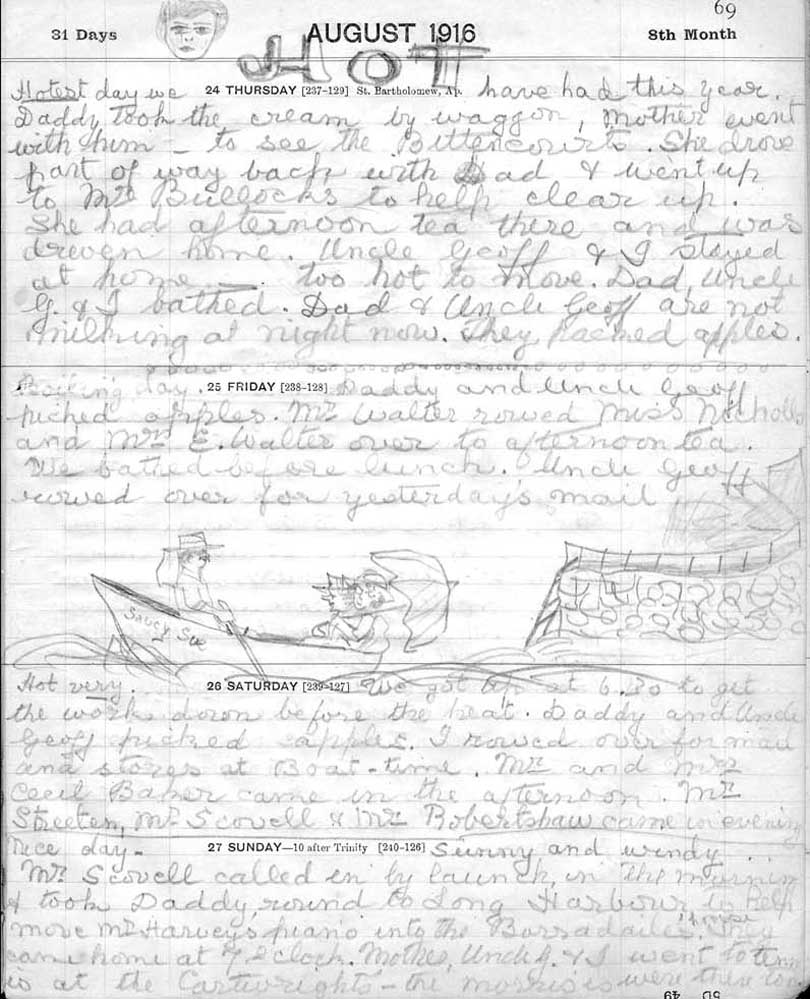 69
31 Days AUGUST 1916 8th Month
HOT
Hotest day we 24 THURSDAY [237-129] St. Bartholomew, Ap. have had this year.
Daddy took the cream by waggon, Mother went
with him – to see the Bittencourts. She drove
part of way back with Dad & went up
to Mrs Bullocks to help clear up.
She had afternoon tea there and was
dreven home. Uncle Geoff & I stayed
at home — too hot to move. Dad, Uncle
G. & I bathed. Dad & Uncle Geoff are not
milking at night now. They packed apples.
Boiling day. 25 FRIDAY [238-128] Daddy and Uncle Geoff
picked apples. Mr Walter rowed Miss Nicholls
and Mrs E. Walter over to afternoon tea.
We bathed before lunch. Uncle Geoff
rowed over for yesterday's mail
Saucy Sue
Hot very. 26 SATURDAY [239-127] We got up at 6.30 to get
the work down before the heat. Daddy and Uncle
Geoff picked apples. I rowed over for mail
and stores at Boat-time. Mr and Mrs
Cecil Baker came in the afternoon. Mr
Streeten, Mr Scovell & Mr Robertshaw came in evening
Nice day- 27 SUNDAY—10 after Trinity [240-126] Sunny and windy
Mr Scovell called in by launch, in the morning
& took Daddy, round to Long Harbour to help
move Mr Harvey's piano into the Borradailes' They
came home at 7 o'clock. Mother, Uncle G. & I went to tenn
is at the Cartwrights – the morris's were there